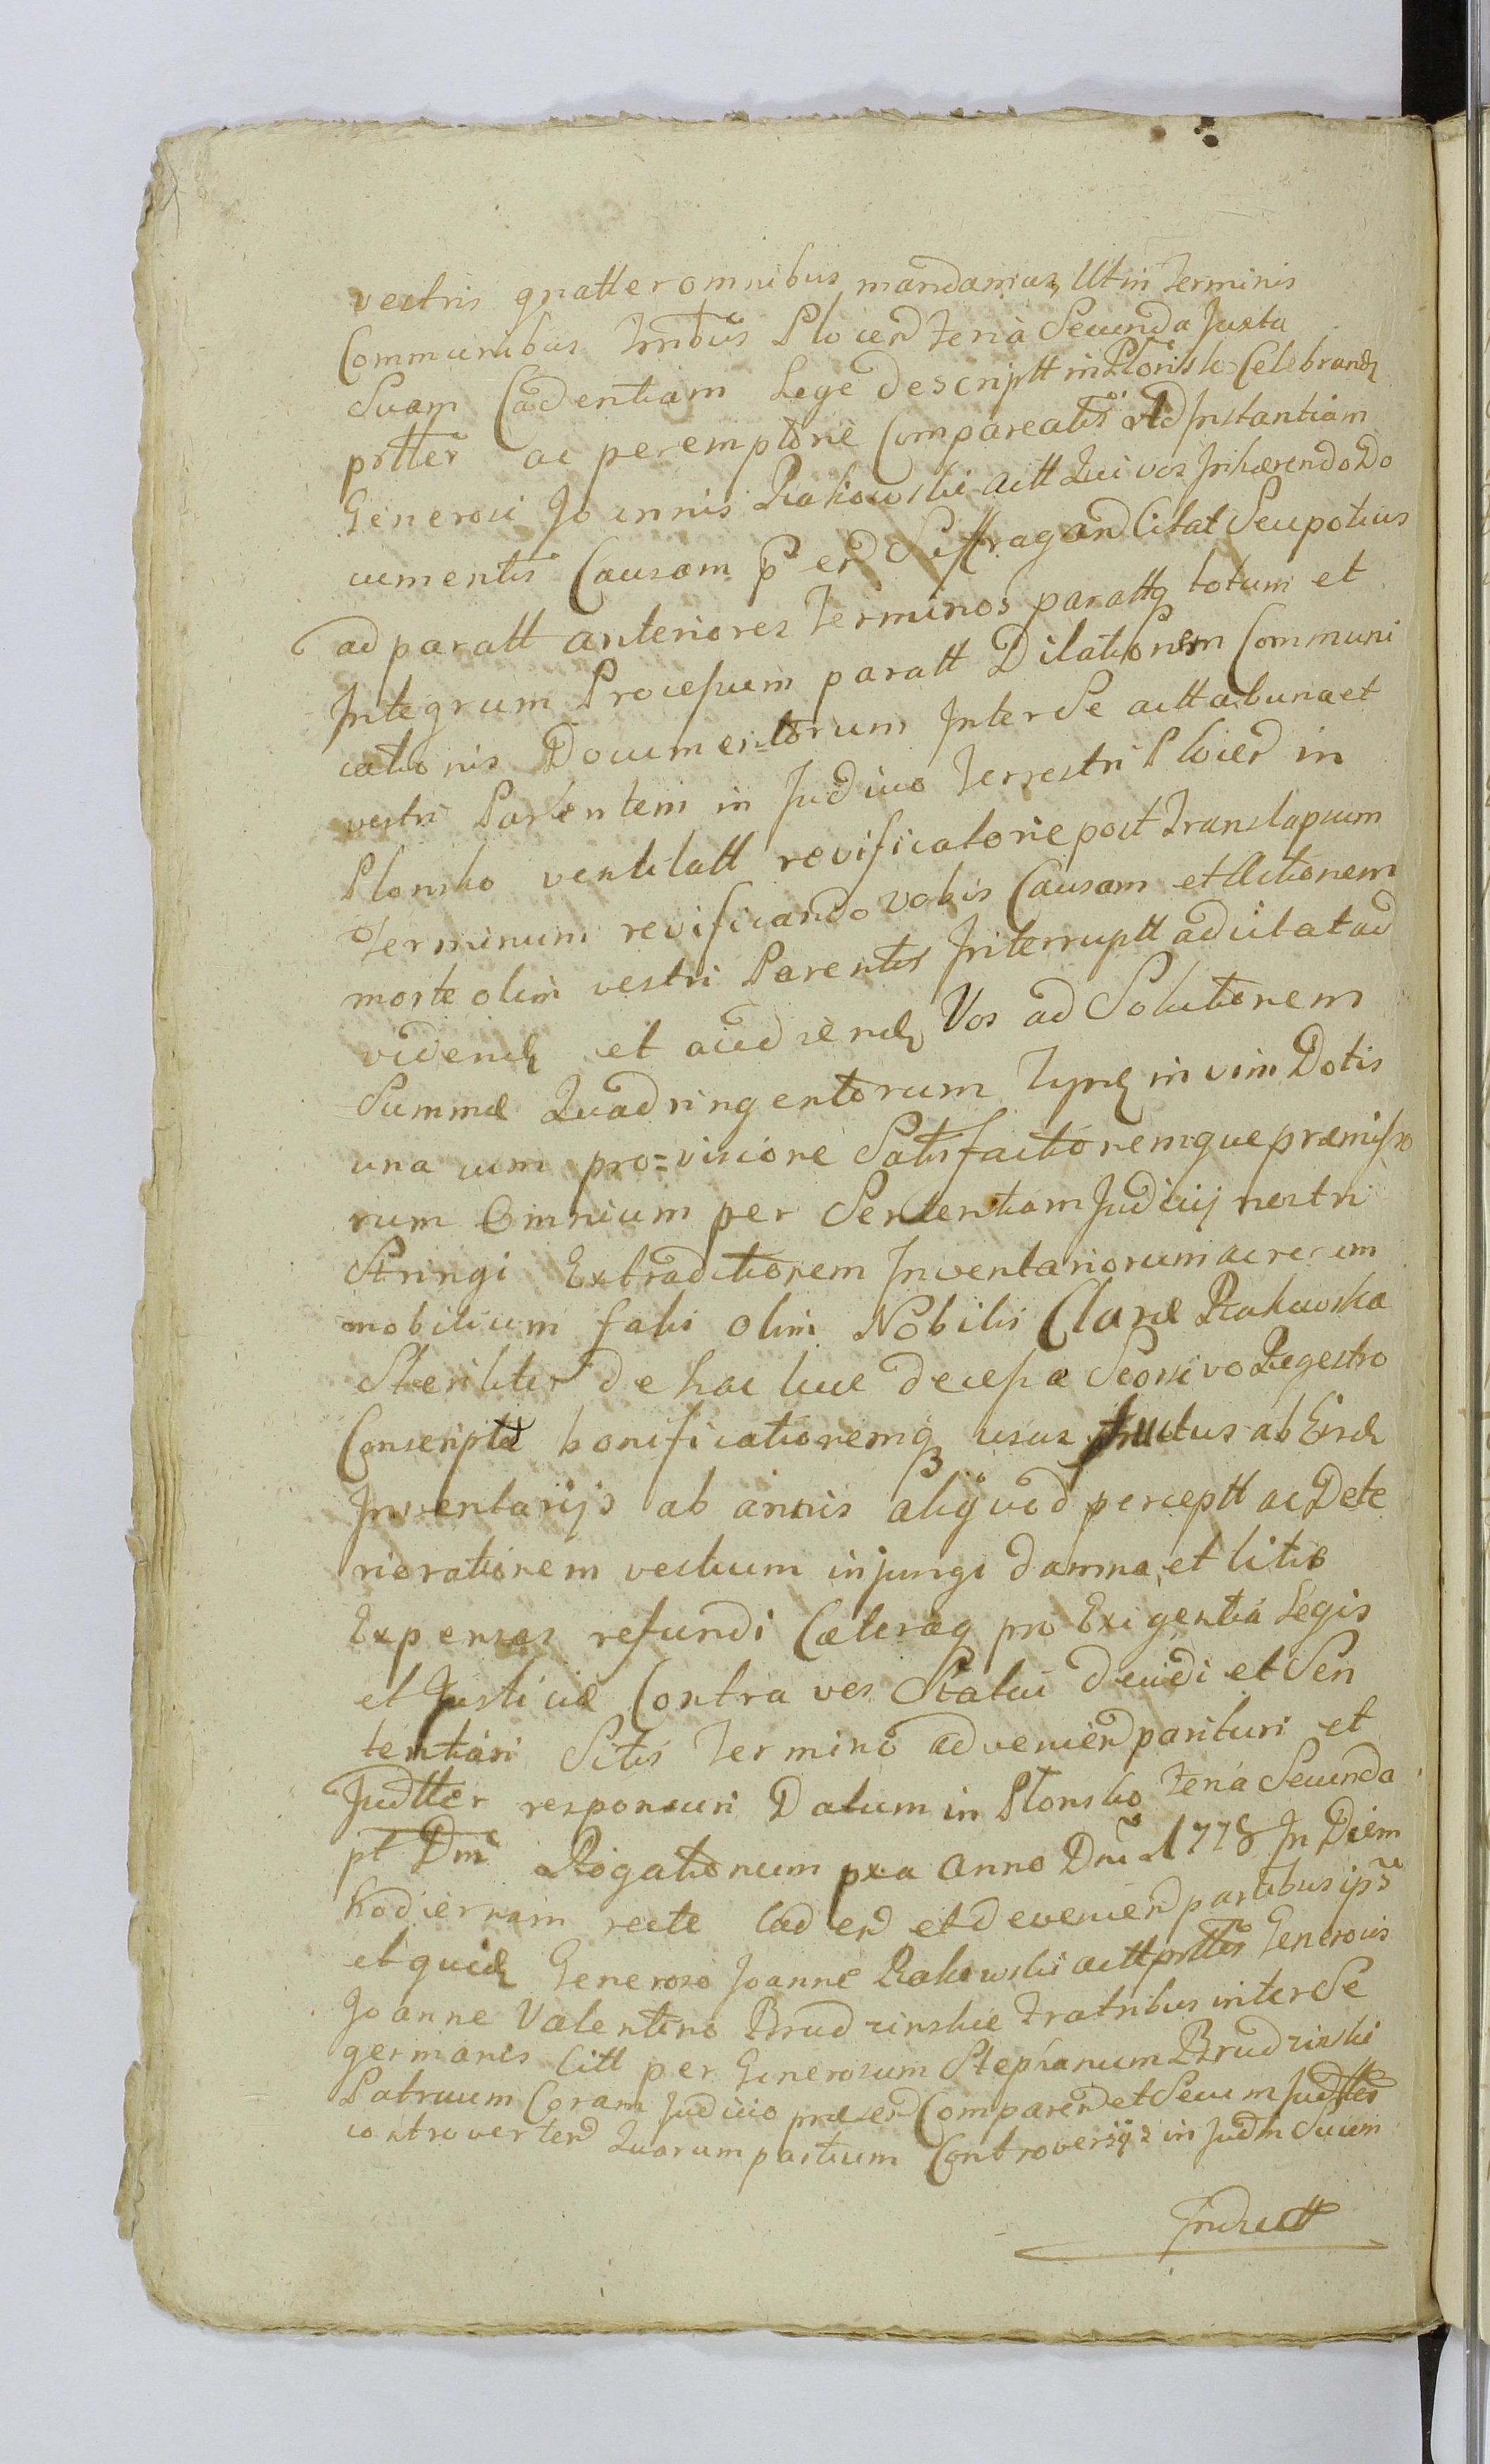 vestris gnatter omnibus mandamus, Ut in Terminis
Communibus Trribus Plocen Feria Secunda Juxta
Suam Cadentiam Lege descriptt in Plonsk Celebrand
prtter ac peremptorie Compareatis Ad Instantiam
Generosi Joannis Rakowski actt Qui vos Inhærendo Do
cumentis Causam Suffragand Citat Seu potius
ad paratt anteriores Terminos paratt totum et
Integrum Processum paratt Dilationem Communi
cationis Documentorum Inter Se actt ab una et
vestri Parentem in Judicio Terrestri Plocen in
Plonsko ventilatt revificatorie post Translapsum
Terminum revificando vobis Causam et Actionem
morte olim vestri Parentis Interruptt adcitat ad
videnda et audienda Vos ad Solutionem
Summæ Quadringentorum Tynf in vim Dotis
una cum pro=visione Satisfactionemque præmisso
rum Omnium per Sententiam Judicij nostri
Stringi Extraditionem Inventariorum ac rerum
mobilium fati olim Nobilis Claræ Rakowska
Steriliter de hac luce decessæ Seorsivo Regestro
Conscriptæ bonificationemq usus fructus ab Eisd
Inventarijs ab annis aliquod perceptt ac Dete
riorationem vestium injungi damna, et litis
Expensas refundi Cæteraq pro Exigentia Legis
et Justiciæ Contra vos Statui decidi et Sen
tentiari Sitis Termino advenien parituri et
Judtter responsuri Datum in Plonsko Feria Secunda
pt Dnī Rogationum pxa Anno Dnī 1778 In Diem
hodiernam recte Caden et devenien partibus ipsis
et quid Generoso Joanne Rakowski actt prtter Generosis
Joanne Valentino Brudzinskie Fratribus inter Se
germanis Citt per Generosum Stephanum Brudzinski
Patruum Coram Judicio præsen Comparen et Secum Judtter
controverten Quarum partium Controversijs in Judm Suum
Inductt